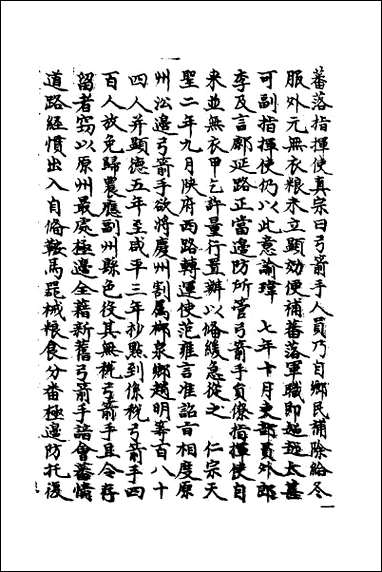 蕃落指揮使真宗曰弓箭手人員乃自鄉民補除給冬
服外元無衣粮未立顯効便補蕃落軍職即越遷太甚
可副指揮使仍以此意諭瑋　七年十月吏部員外郎
李及言鄜延路正當邊防所管弓箭手負僚指揮使自
来並無衣甲乞許量行置辦以俻緩急從之　仁宗天
聖二年九月陜府西路轉運使范雍言准詔百相度原
州沿邊弓箭手欲將慶州割属鄉泉鄉趙明等百八十
四人并顯德五年至咸平三年抄㸃到係税弓箭手四
百人放免歸農應副州縣色役其無税弓箭手且令存
留者竊以原州最處極邊全藉新舊弓箭手諳會蕃情
道路經慣出入自俻鞍馬噐械粮食分畨極邊防托後
一